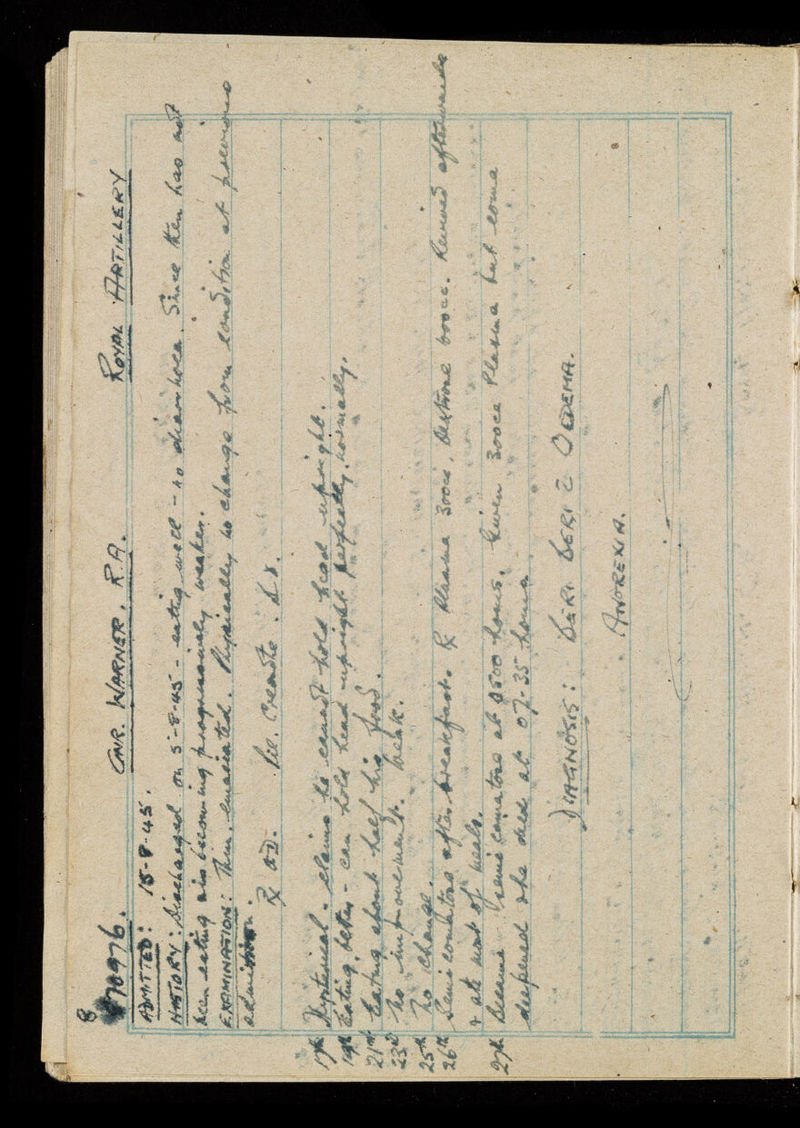 8
870976. GNR. WARNER. R.A. ROYAL ARTILLERY
ADMITTED: 15-8-45.
HISTORY: Discharged on 5-8-45 - eating well - no diarrhoea. Since then has not
been eating and becoming progressively weaker.
EXAMINATION: Thin, emaciated. Physically no change from condition at previous
admission.
R OD. Pil. Creosote.
17th Hysterical - claims he cannot hold head upright.
19th Eating better - can hold head upright perfectly normally.
21st Eating about half his food.
23rd No improvement. Weak.
25th No change.
26th Semicomatose after breakfast. R Plasma 300cc, Dextrose 600cc. Revived afterwards
& ate most of meals.
27th Became semicomatose at 0500 hours. Given 300cc Plasma but coma
deepened & he died at 07.35 hours
DIAGNOSIS: BERI BERI c̄ OEDEMA.
ANOREXIA.